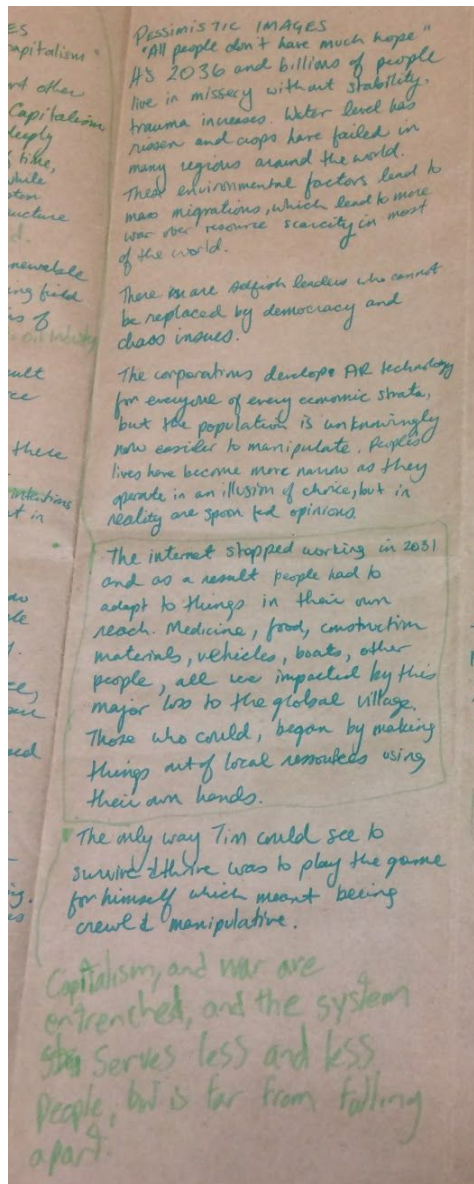 ES
capitalism"
rt other
Capitalism
deeply
time,
while
ucture
newable
ing field
s of
oil industry
cult
ce
these
intentions
t in
PESSIMISTIC IMAGES
"All people don't have much hope"
It's 2036 and billions of people
live in missery without stability,
trauma increases. Water level has
riosen and crops have failed in
many regions around the world.
These environmental factors lead to
mass migrations, which lead to more
war over resource scarcity in most
of the world.
There are selfish leaders who cannot
be replaced by democracy and
chaos insues.
The corporations develope AR technology
for everyone of every ecnomic strata,
but the population is unknowingly
now easier to manipulate. People's
lives have become more narrow as they
operate in an illusion of choice, but in
reality are spoon fed opinions.
The internet stopped working in 2031
and as a result people had to
adapt to things in their own
reach. Medicine, food, construction
materials, vehicles, boats, other
people, all we impacted by this
major loss to the global village.
Those who could, began by making
things out of local ressources using
their own hands.
The only way Tim could see to
survive & thrive was to play the game
for himself which meant beeing
crewl & manipulative.
Capitalism, and war are
entrenched, and the system
Serves less and less
People, but is far from falling
apart.